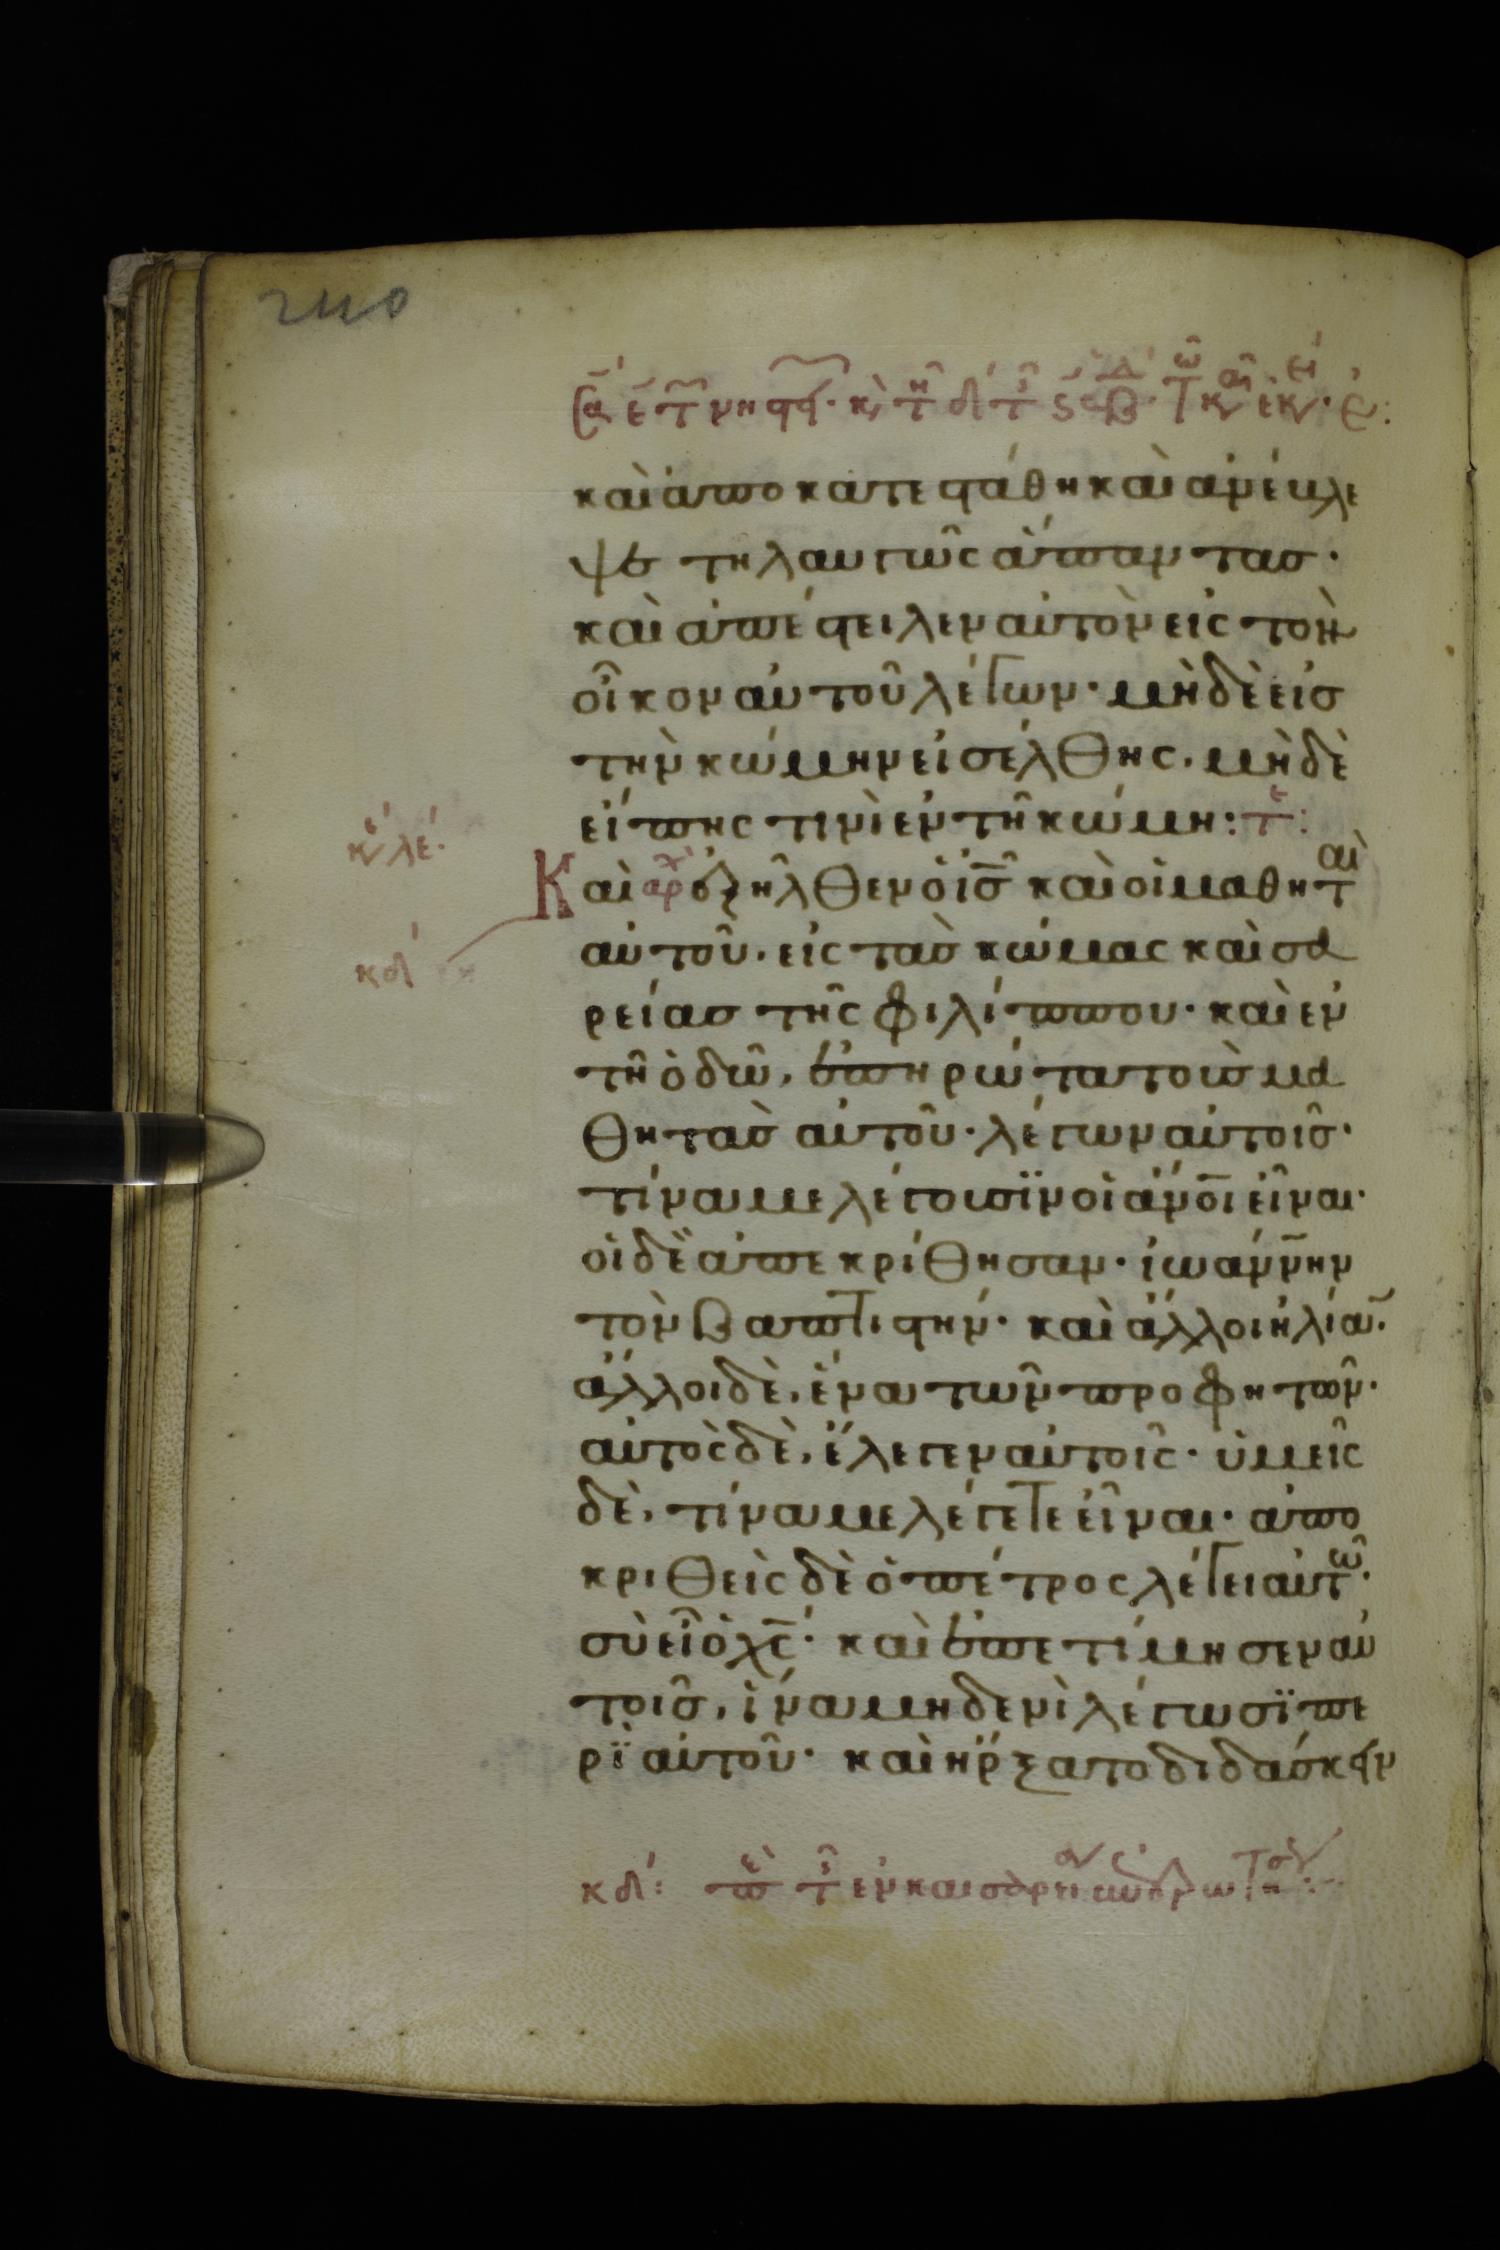 240
καὶ ἀποκατεστάθη καὶ ἀνέβλε
ψε τηλαυγῶς ἅπαντας·
καὶ ἀπέστειλεν αὐτὸν εἰς τὸν
οἶκον αὐτοῦ λέγων· μὴ δὲ εἰσ
τὴν κώμην εἰσέλθης, μὴ δὲ
εἴπης τινὶ ἐν τῆ κώμη:
Καὶ ἐξῆλθεν ὁ ἰς καὶ οἱ μαθηταὶ
αὐτοῦ, εἰς τὰς κώμας καισα
ρείας τῆς φιλίππου· καὶ ἐν
τῆ ὁδῶ, ἐπηρώτα τοὺς μα
θητὰς αὐτοῦ· λέγων αὐτοῖς·
τίνα με λέγουσϊν οἱ ἄνοι εἶναι·
οἱ δὲ ἀπεκρίθησαν· ἰωάννην
τὸν βαπτιστήν· καὶ ἄλλοι ἠλίαν·
ἄλλοι δὲ, ἕνα τῶν προφητῶν·
αὐτὸς δὲ, ἔλεγεν αὐτοῖς· ὑμεῖς
δὲ, τίνα με λέγετε εἶναι· ἀπο
κριθεὶς δὲ ὁ πέτρος λέγει αὐτῶ·
σὺ εἶ ὁ χς· καὶ ἐπετίμησεν αὐ
τοῖς, ἵνα μηδενὶ λέγωσϊ πε
ρϊ αὐτοῦ· καὶ ἤρξατο διδάσκειν